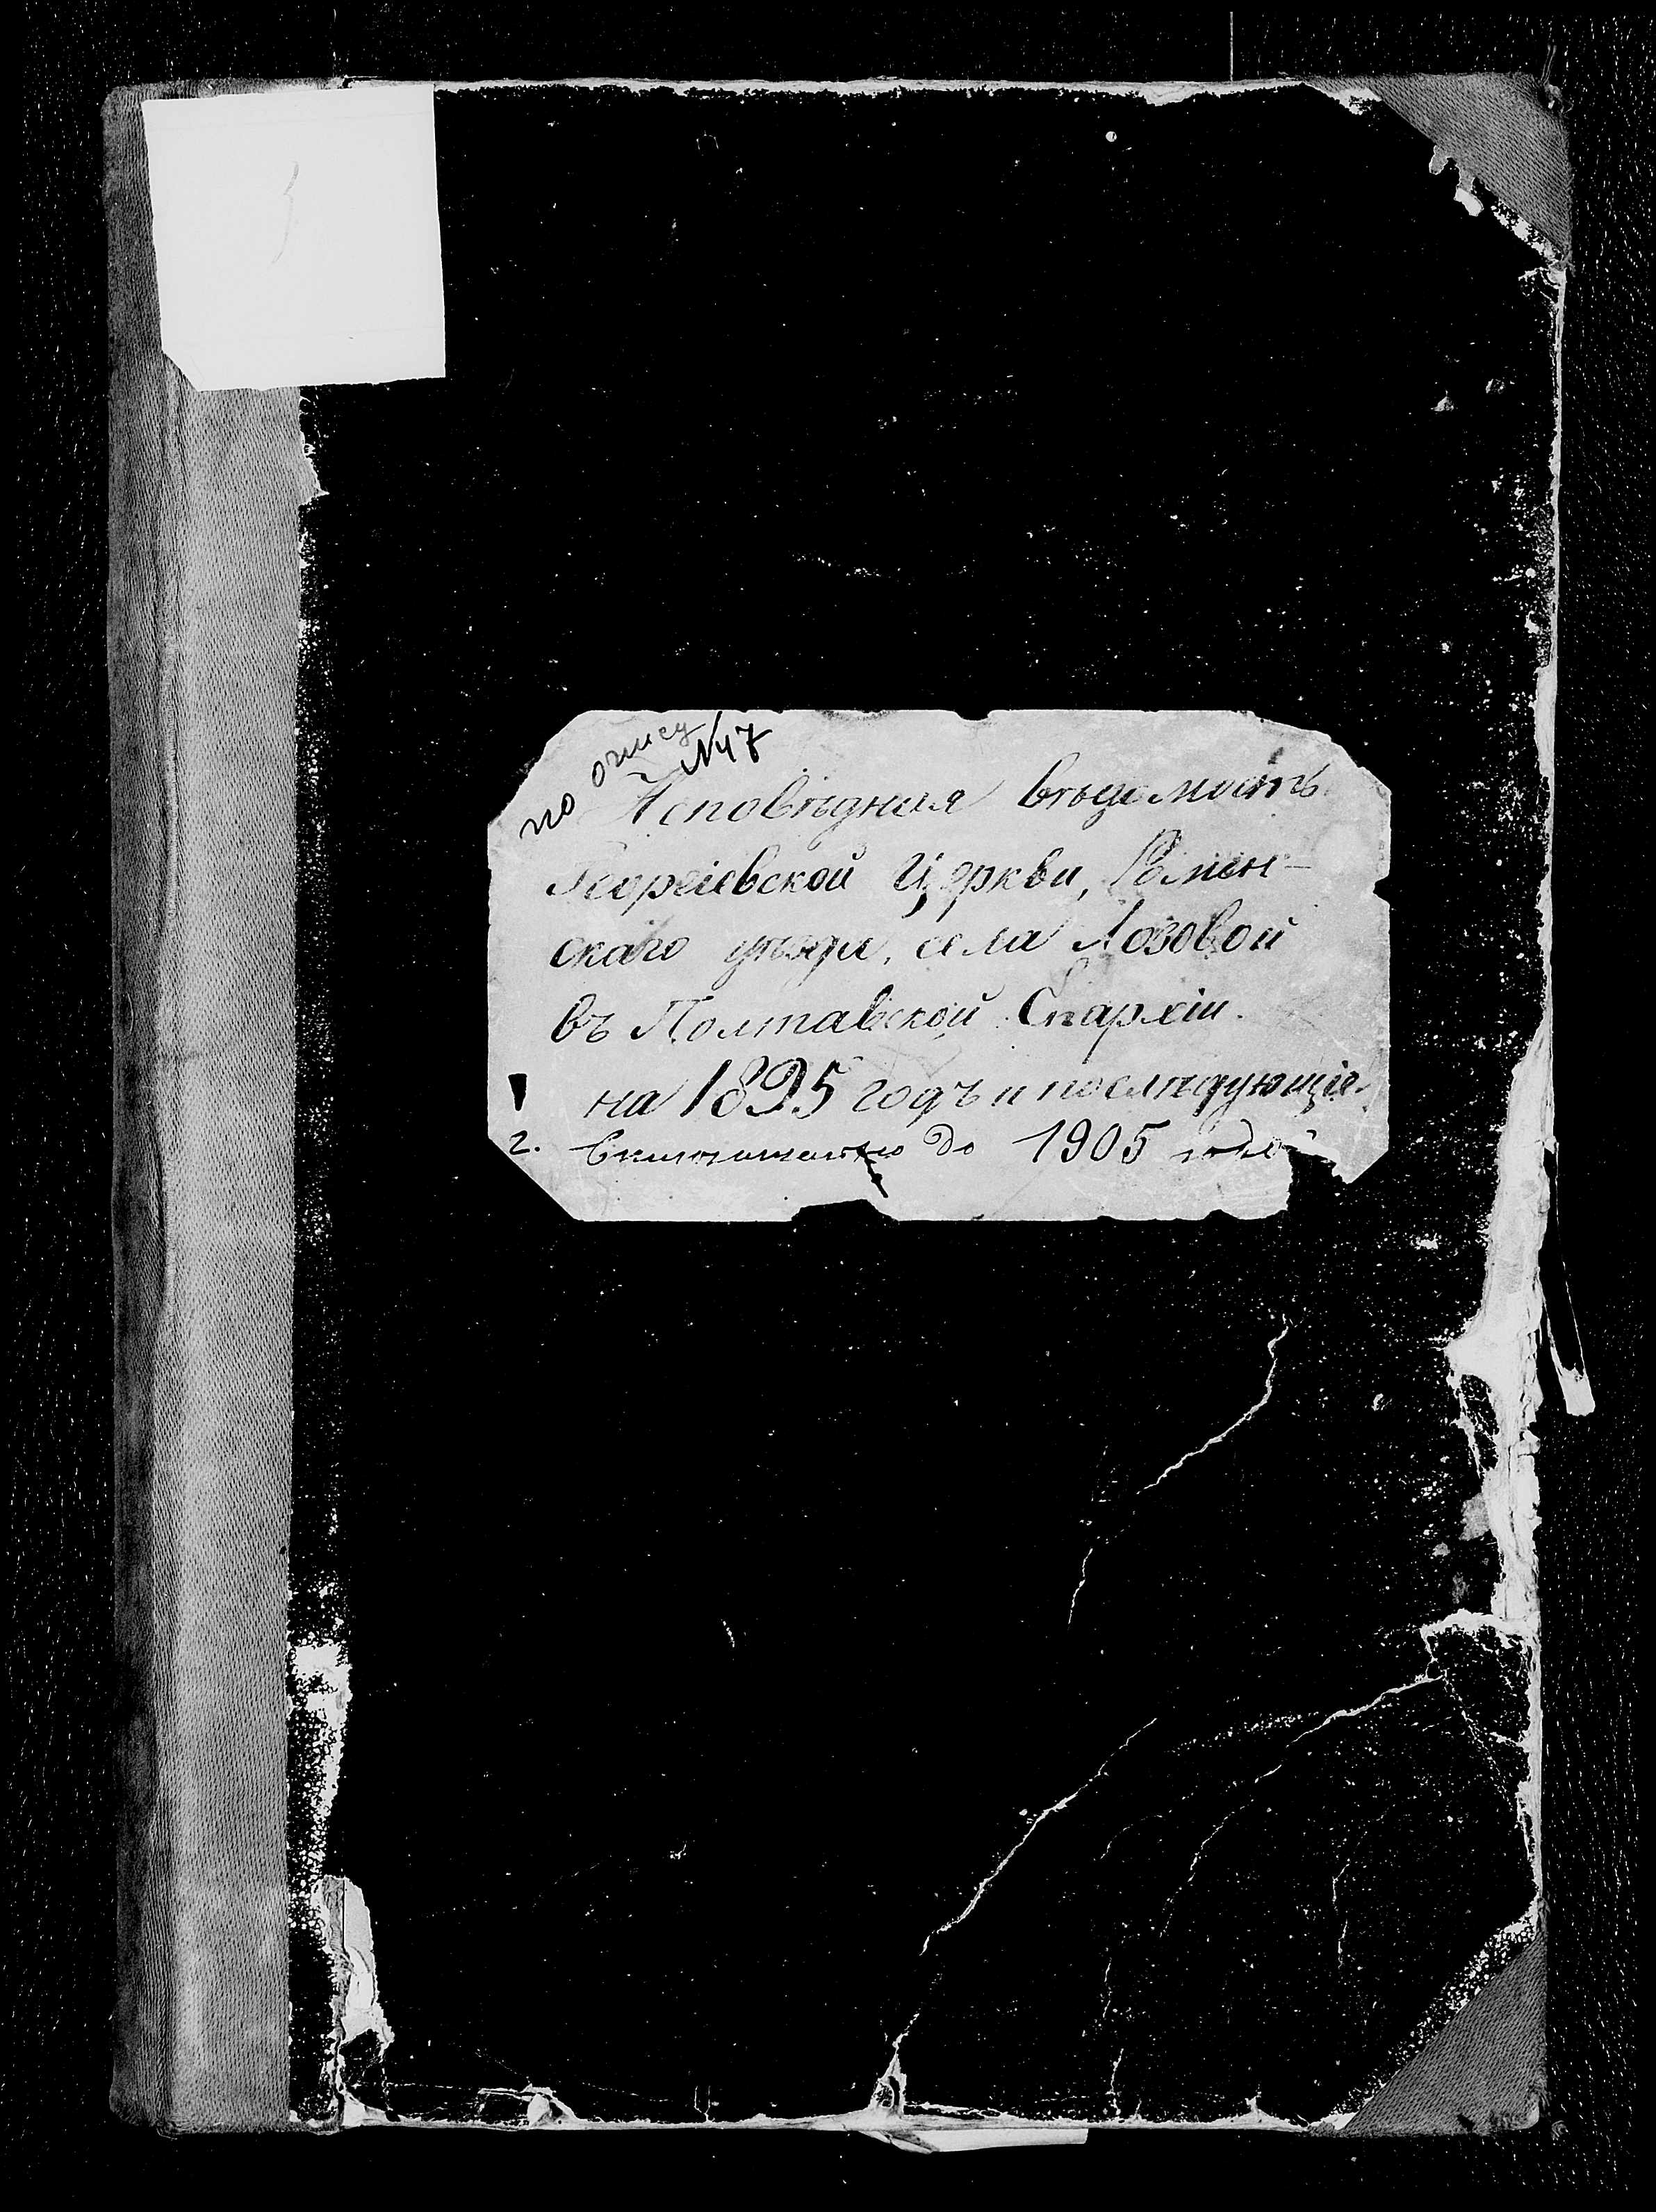 по опису №47
Исповѣдная вѣдомость
Георгіевской Церкви, Ромен-
скаго уѣзда, села Лозовой
въ Полтавской Епархіи.
на 1895 годъ и послѣдующіе
г. включительно до 1905 года